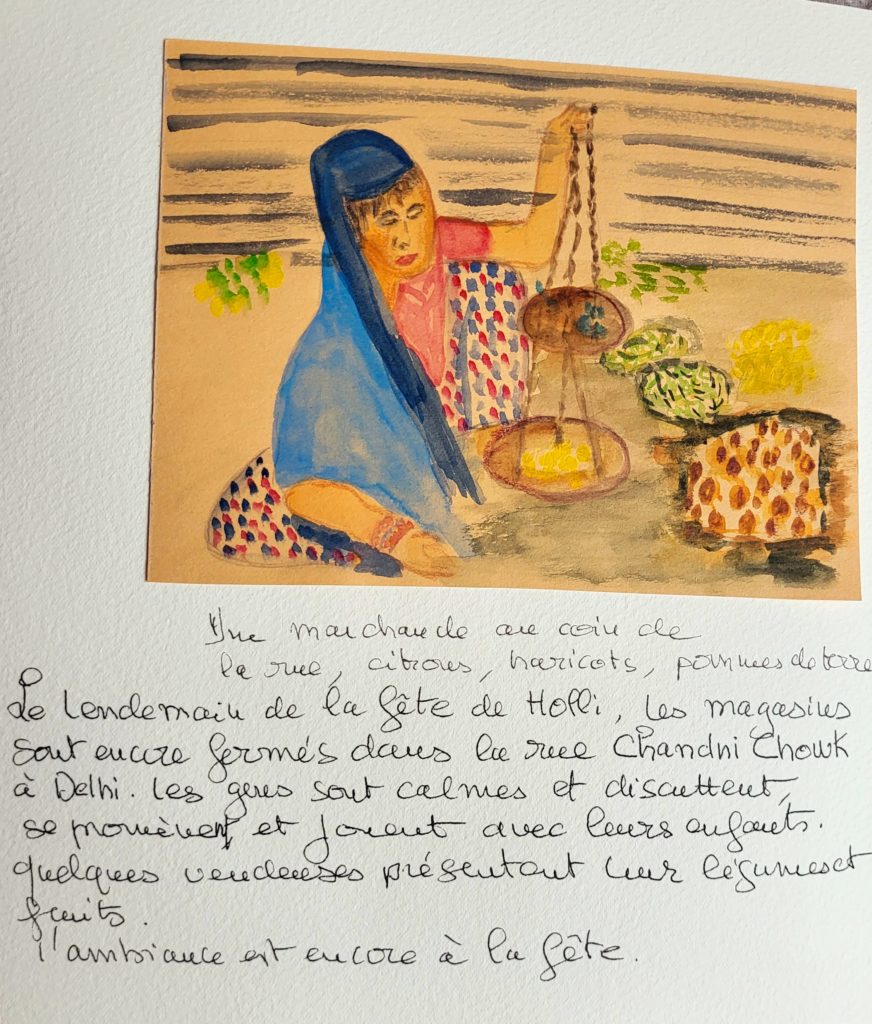 Une marchande au coin de
la rue, citrons, haricots, pommes de terre
Le lendemain de la fête de Holli, les magasins
sont encore fermés dans la rue Chandni Chowk
à Delhi. Les gens sont calmes et discuttent,
se promènent et jouent avec leurs enfants.
quelques vendeuses présentant leur légumes et
fruits.
l'ambiance est encore à la fête.